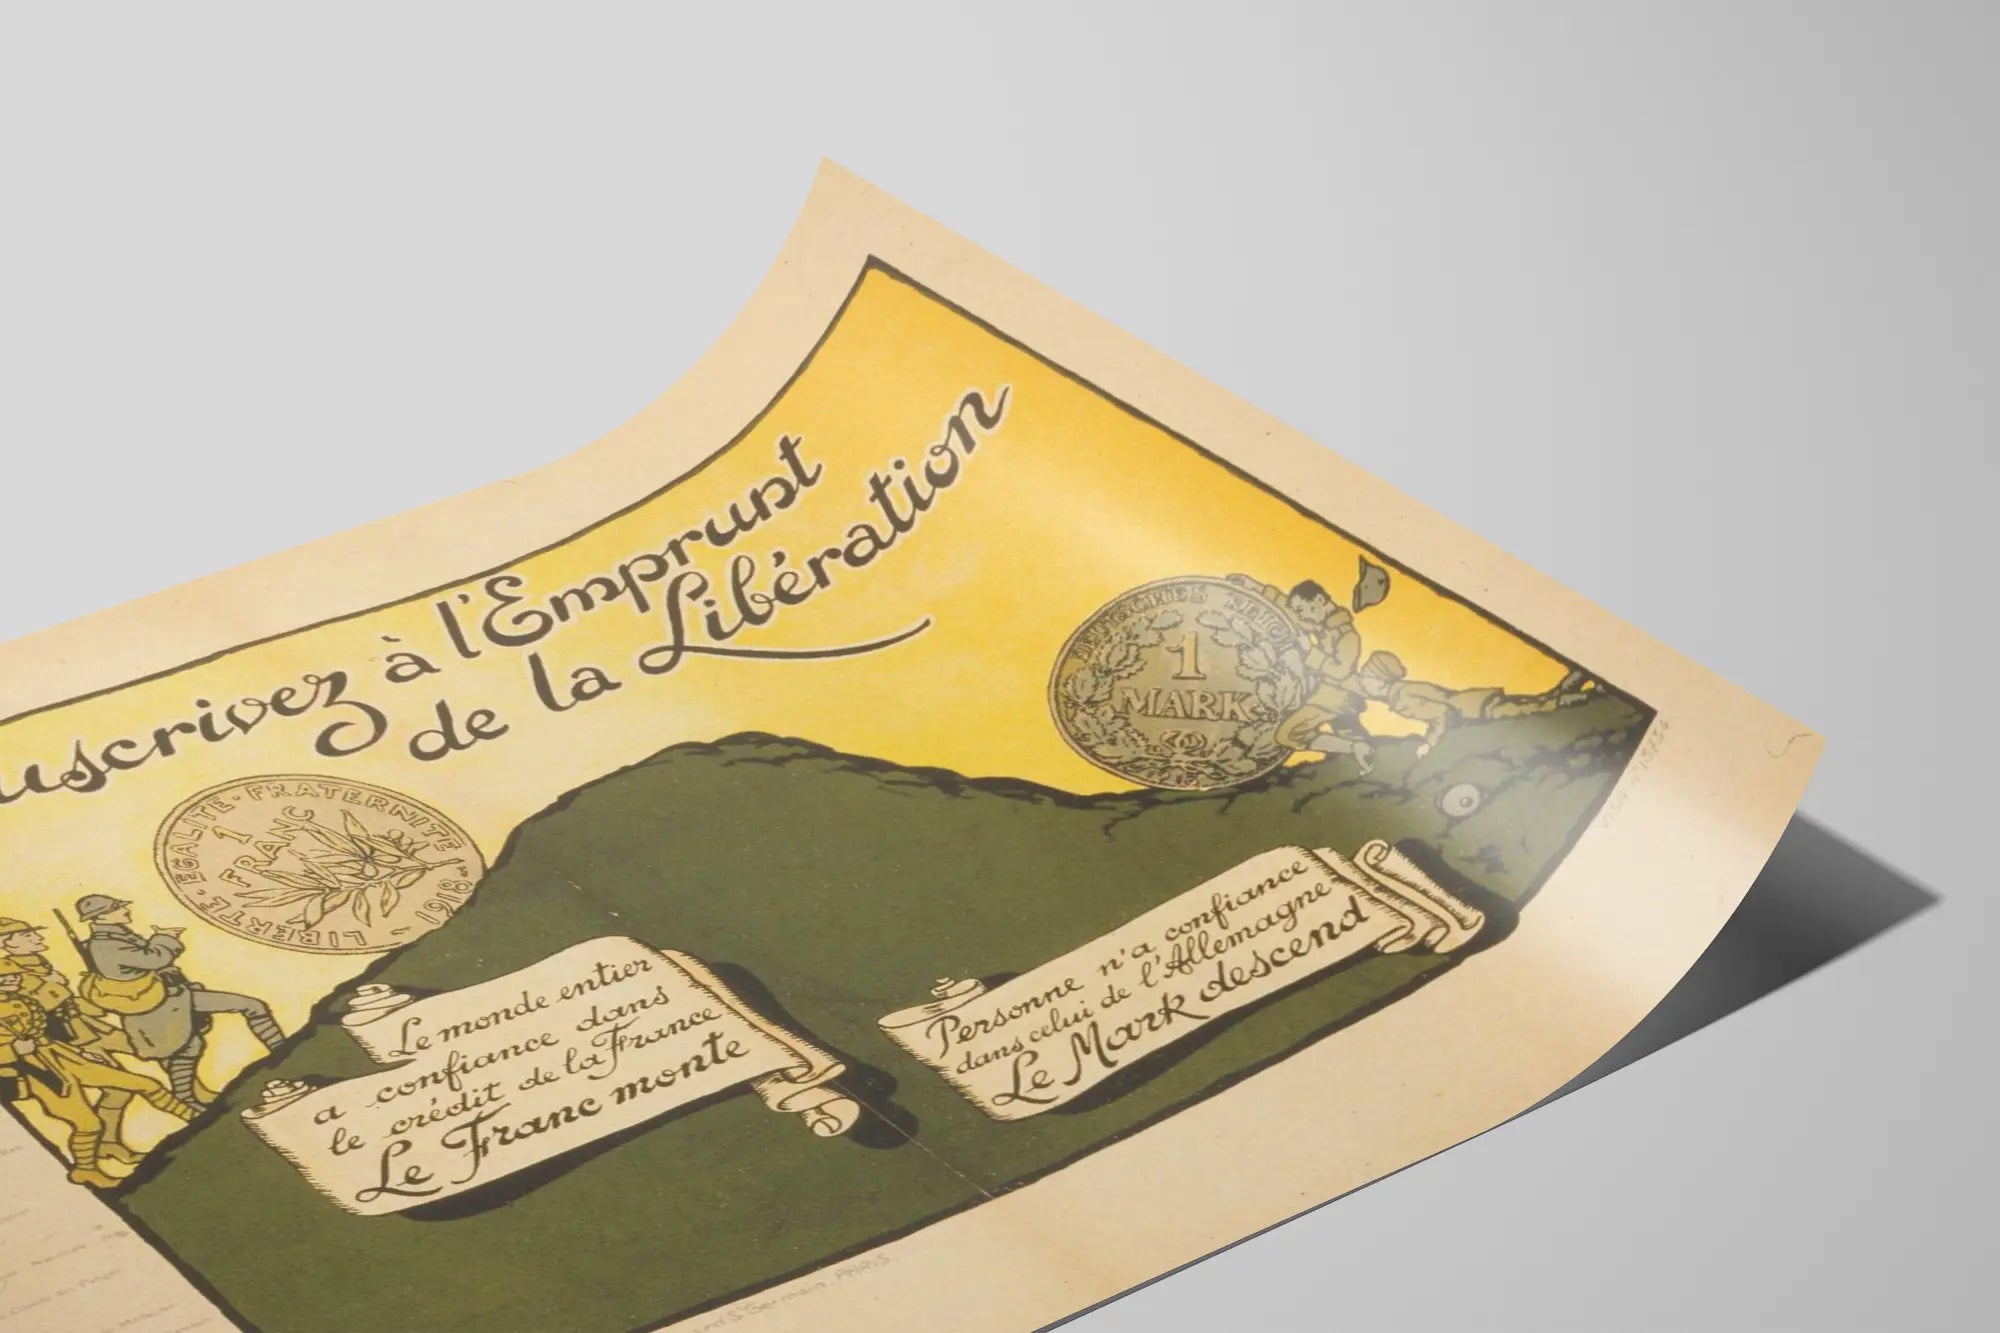 uscrivez à l'Emprunt
de la Libération
LIBERTE·EGALITE·FRATERNITE
1
FRANC
1918
DEUTSCHES REICH
1
MARK
Le monde entier
a confiance dans
le crédit de la France
Le Franc monte
Personne n'a confiance
dans celui de l'Allemagne
Le Mark descend
St Germain. PARIS.